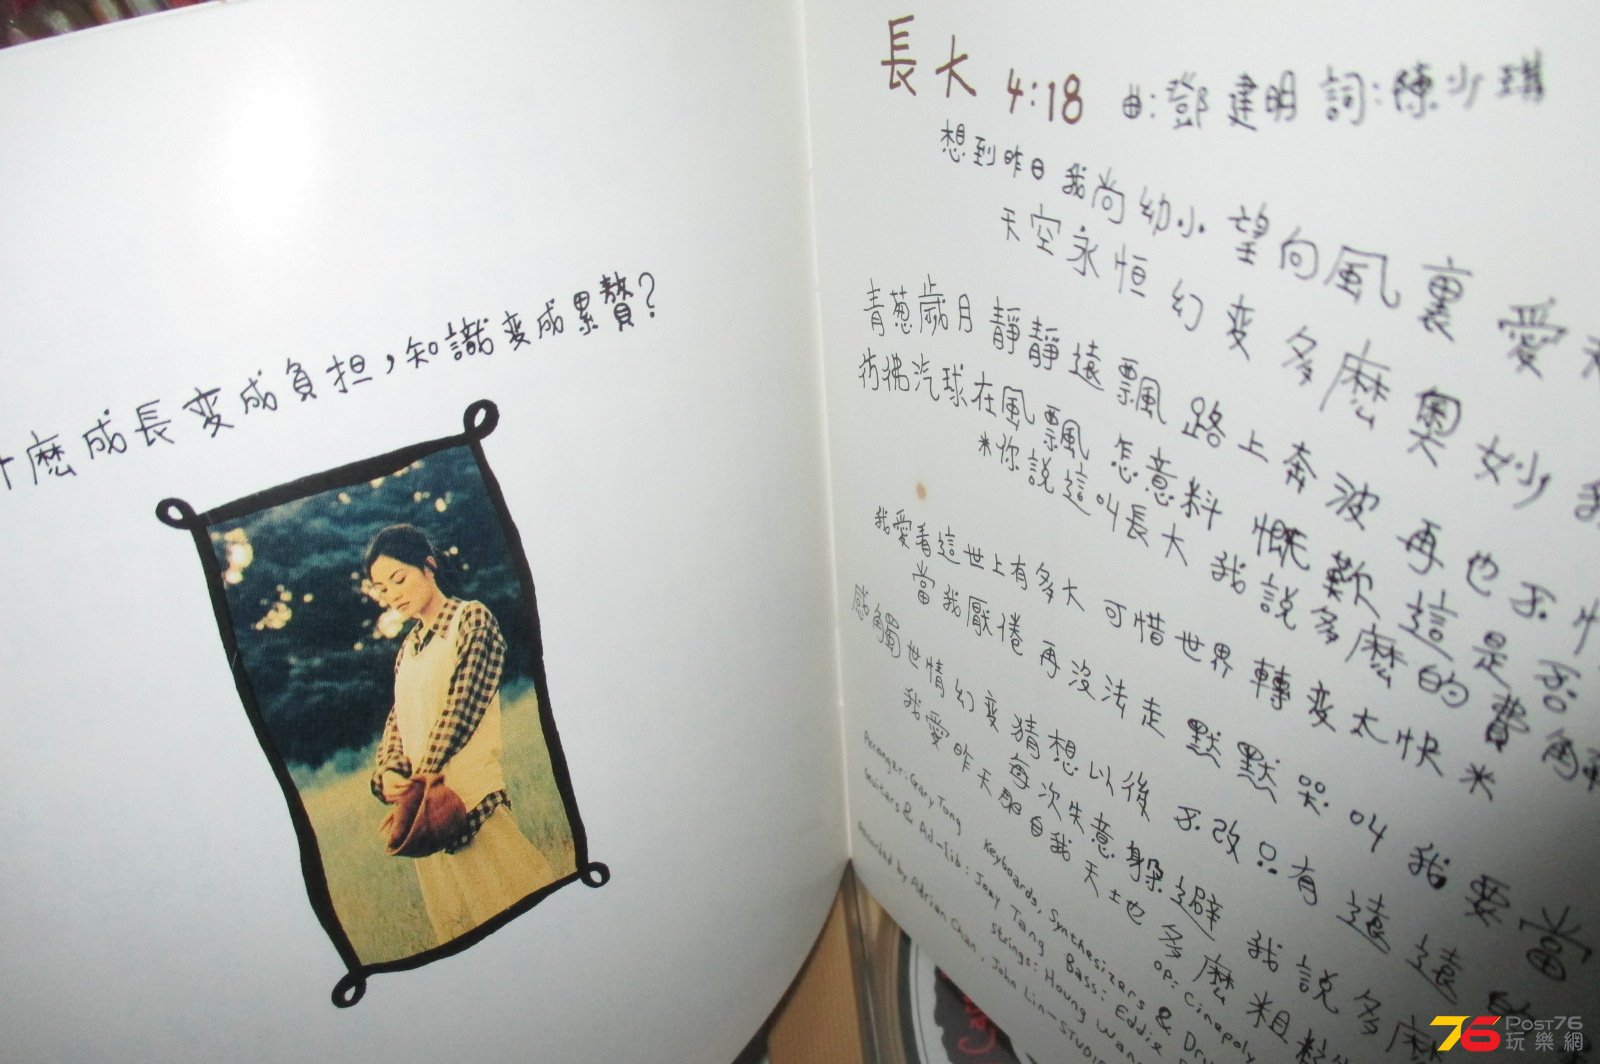 什麽成長变成負担,知識变成累贅?
長大 4:18 曲:鄧建明 詞:陳少琪
想到昨日 我尚幼小 望向風裏 愛
天空永恒 幻变多麽奧妙 我
青葱歲月 靜靜遠飄 路上奔波 再也不
彷彿汽球在風飄 怎意料 慨歎這是不
*你說這叫長大 我說多麽的費
我愛看這世上有多大 可惜世界轉变太快*
當我厭倦 再没法走 默默哭叫 我要當
感觸世情幻变 猜想以後 不改只有遠遠
每次失意躲避 我說多麽
我愛昨天的自我 天士也多麽粗
Arranger: Gary Tong Keyboards, Synthesizers &
Guitars & Ad-lib: Joey Tang Bass: Eddie
Strings: Houng Wang
Recorded by Adrian Chan, John Lin-STUDIO
OP: Cinepoly
76 Post76
玩樂網